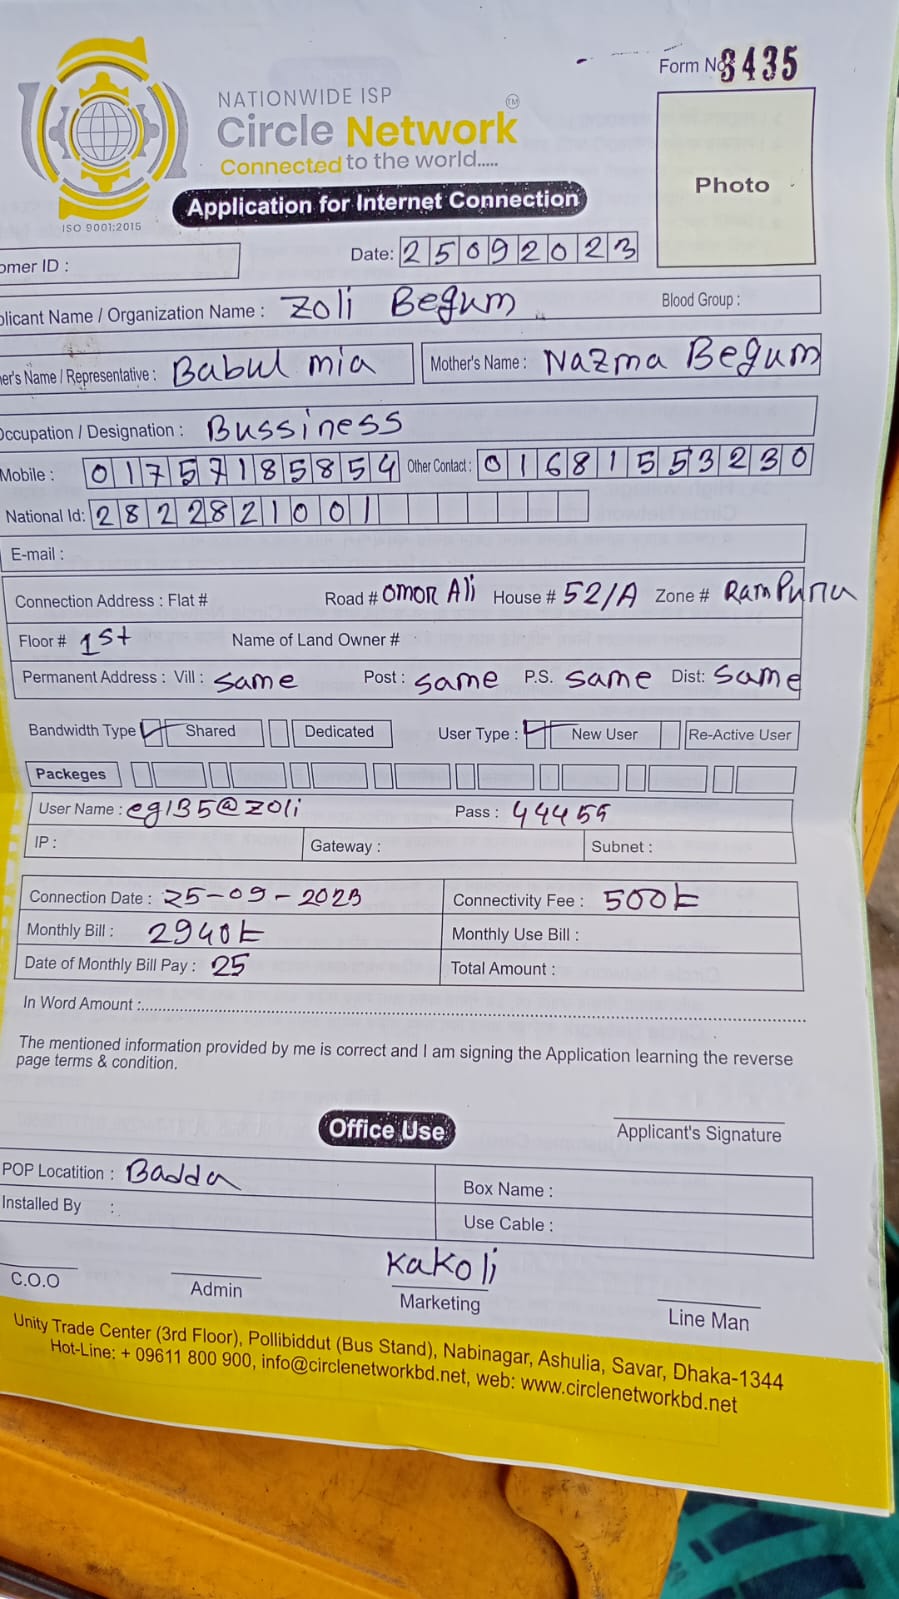 Form No 8435
NATIONWIDE ISP
Circle Network TM
Connected to the world.....
Photo
Application for Internet Connection
ISO 9001:2015
omer ID :
Date: 25092023
plicant Name / Organization Name : Zoli Begum Blood Group :
her's Name / Representative : Babul mia Mother's Name : Nazma Begum
Occupation / Designation : Bussiness
Mobile : 01757185854 Other Contact : 01681553230
National Id: 2822821001
E-mail :
Connection Address : Flat # Road # Omor Ali House # 52/A Zone # RamPura
Floor # 1st Name of Land Owner #
Permanent Address : Vill : Same Post : Same P.S. Same Dist: Same
Bandwidth Type Shared Dedicated User Type : New User Re-Active User
Packeges
User Name : eg135@zoli Pass : 44455
IP : Gateway : Subnet :
Connection Date : 25-09-2023 Connectivity Fee : 500/-
Monthly Bill : 2940/- Monthly Use Bill :
Date of Monthly Bill Pay : 25 Total Amount :
In Word Amount :
The mentioned information provided by me is correct and I am signing the Application learning the reverse
page terms & condition.
Office Use
Applicant's Signature
POP Locatition : Badda Box Name :
Installed By : Use Cable :
Kakoli
C.O.O Admin Marketing Line Man
Unity Trade Center (3rd Floor), Pollibiddut (Bus Stand), Nabinagar, Ashulia, Savar, Dhaka-1344
Hot-Line: + 09611 800 900, info@circlenetworkbd.net, web: www.circlenetworkbd.net